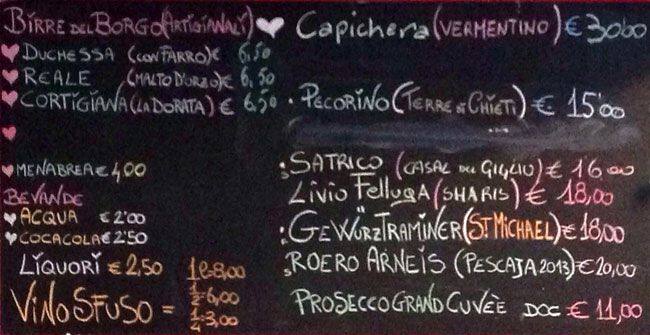 BIRRE DEL BORGO (ARTIGIANALI)
DUCHESSA (CON FARRO) € 6,50
REALE (MALTO D'ORZO) € 6,50
CORTIGIANA (LA DORATA) € 6,50
MENABREA € 4,00
BEVANDE
ACQUA € 2'00
COCACOLA € 2'50
LIQUORI € 2,50
VINO SFUSO = 1 e 8,00
1/2 6,00
1/4 3,00
CAPICHERA (VERMENTINO) € 30'00
PECORINO (TERRE DI CHIETI) € 15'00
SATRICO (CASAL DEL GIGLIO) € 16'00
LIVIO FELLUGA (SHARIS) € 18,00
GEWÜRZTRAMINER (ST MICHAEL) € 18,00
ROERO ARNEIS (PESCAJA 2013) € 20,00
PROSECCO GRAND CUVÉE DOC € 11,00